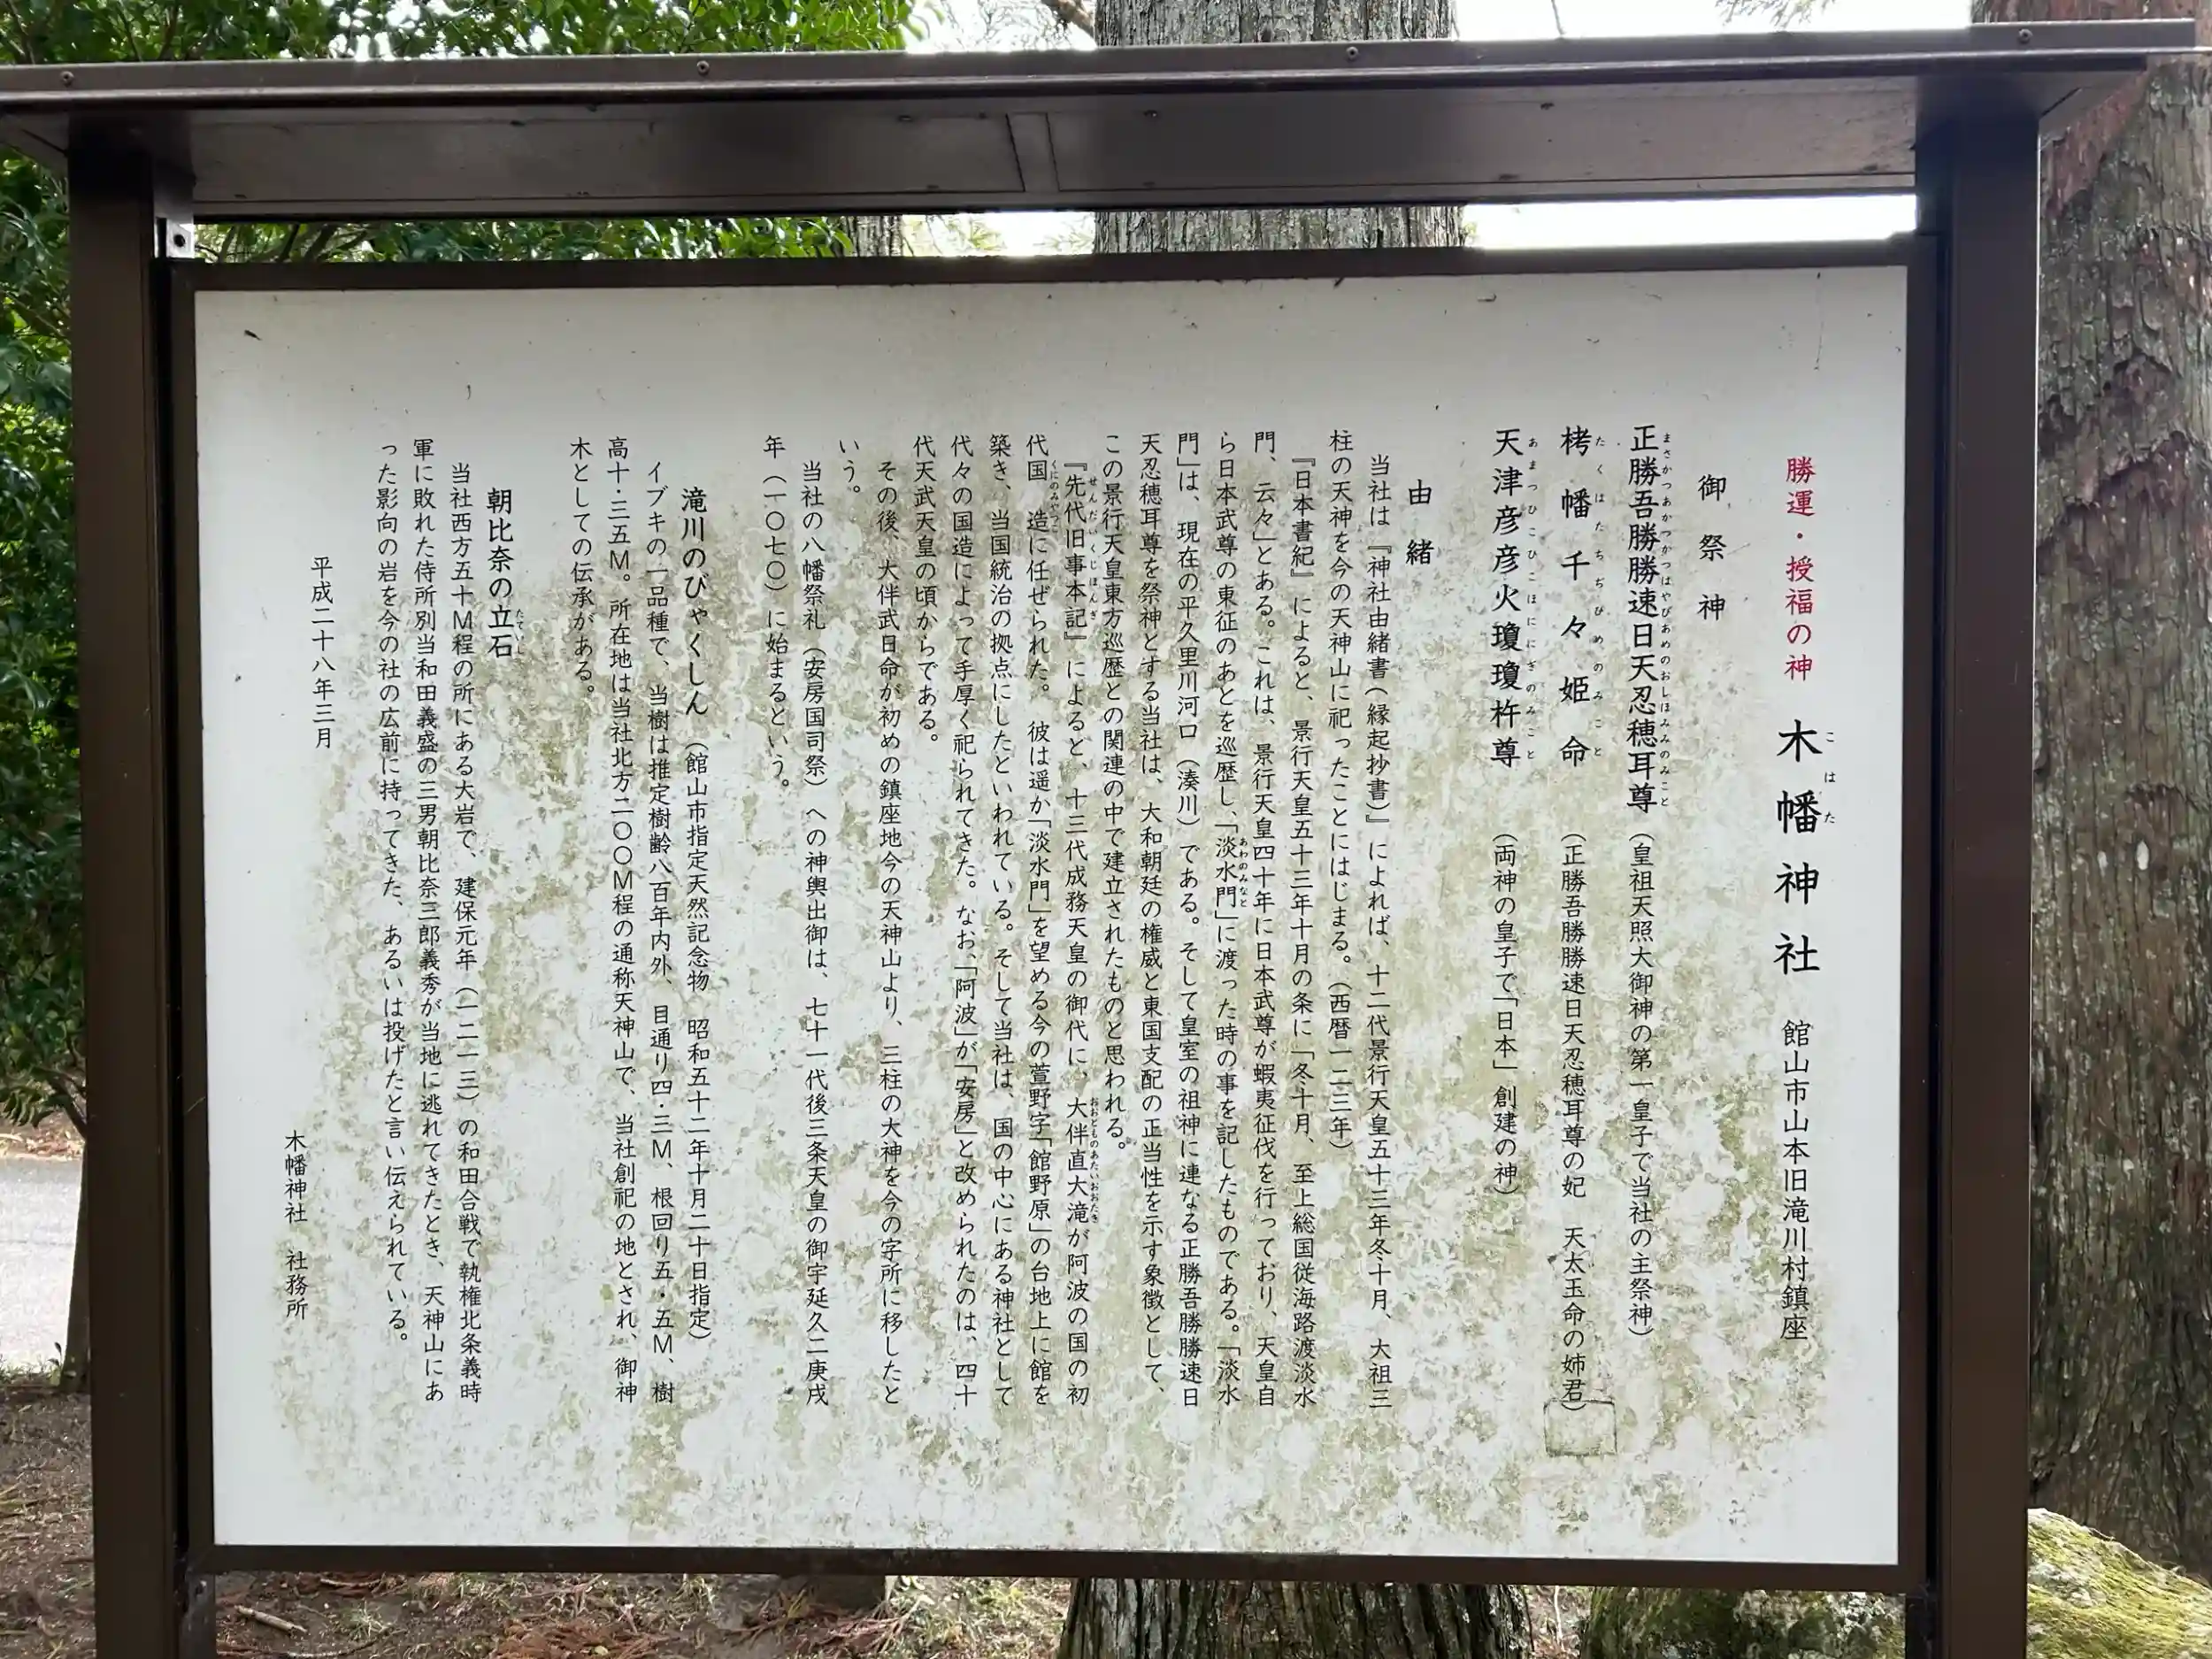 勝運・授福の神 木幡神社 館山市山本旧滝川村鎮座
こはた
御祭神
正勝吾勝勝速日天忍穂耳尊 (皇祖天照大御神の第一皇子で当社の主祭神)
まさかつあかつかつはやびあめのおしほみみのみこと
栲幡千々姫命 (正勝吾勝勝速日天忍穂耳尊の妃 天太玉命の姉君)
たくはたちぢひめのみこと
天津彦彦火瓊瓊杵尊 (両神の皇子で「日本」創建の神)
あまつひこひこほににぎのみこと
由緒
当社は『神社由緒書(縁起抄書)』によれば、十二代景行天皇五十三年冬十月、大祖三
柱の天神を今の天神山に祀ったことにはじまる。(西暦一二三年)
『日本書紀』によると、景行天皇五十三年十月の条に「冬十月、至上総国従海路渡淡水
門、云々」とある。これは、景行天皇四十年に日本武尊が蝦夷征伐を行っており、天皇自
ら日本武尊の東征のあとを巡歴し、「淡水門」に渡った時の事を記したものである。「淡水
あわのみなと
門」は、現在の平久里川河口(湊川)である。そして皇室の祖神に連なる正勝吾勝勝速日
天忍穂耳尊を祭神とする当社は、大和朝廷の権威と東国支配の正当性を示す象徴として、
この景行天皇東方巡歴との関連の中で建立されたものと思われる。
『先代旧事本記』によると、十三代成務天皇の御代に、大伴直大滝が阿波の国の初
せんだいくじほんぎ おおとものあたいおおたき
代国造に任ぜられた。彼は遥か「淡水門」を望める今の萱野字「館野原」の台地上に館を
くにのみやつこ
築き、当国統治の拠点にしたといわれている。そして当社は、国の中心にある神社として
代々の国造によって手厚く祀られてきた。なお、「阿波」が「安房」と改められたのは、四十
代天武天皇の頃からである。
その後、大伴武日命が初めの鎮座地今の天神山より、三柱の大神を今の字所に移したと
いう。
当社の八幡祭礼(安房国司祭)への神輿出御は、七十一代後三条天皇の御宇延久二庚戌
年(一〇七〇)に始まるという。
滝川のびゃくしん (館山市指定天然記念物 昭和五十二年十月二十日指定)
イブキの一品種で、当樹は推定樹齢八百年内外、目通り四・三M、根回り五・五M、樹
高十・三五M。所在地は当社北方二〇〇M程の通称天神山で、当社創祀の地とされ、御神
木としての伝承がある。
朝比奈の立石
たていし
当社西方五十M程の所にある大岩で、建保元年(一二一三)の和田合戦で執権北条義時
軍に敗れた侍所別当和田義盛の三男朝比奈三郎義秀が当地に逃れてきたとき、天神山にあ
った影向の岩を今の社の広前に持ってきた、あるいは投げたと言い伝えられている。
平成二十八年三月
木幡神社 社務所